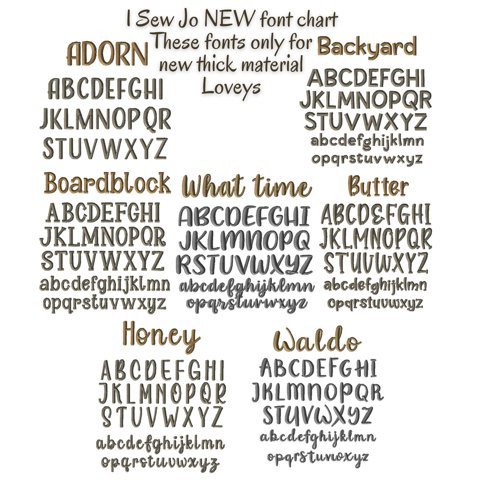 I Sew Jo NEW font chart
These fonts only for
new thick material
Loveys
ADORN
ABCDEFGHI
JKLMNOPQR
STUVWXYZ
Backyard
ABCDEFGHI
JKLMNOPQR
STUVWXYZ
abcdefghijklmn
opqrstuvwxyz
Boardblock
ABCDEFGHI
JKLMNOPQR
STUVWXYZ
abcdefghijklmn
opqrstuvwxyz
What time
ABCDEFGHI
JKLMNOPQ
RSTUVWXYZ
abcdefghijklmn
opqrstuvwxyz
Butter
ABCDEFGHI
JKLMNOPQR
STUVWXYZ
abcdefghijklmn
opqrstuvwxyz
Honey
ABCDEFGHI
JKLMNOPQR
STUVWXYZ
abcdefghijklmn
opqrstuvwxyz
Waldo
ABCDEFGHI
JKLMNOPQR
STUVWXYZ
abcdefghijklmn
opqrstuvwxyz